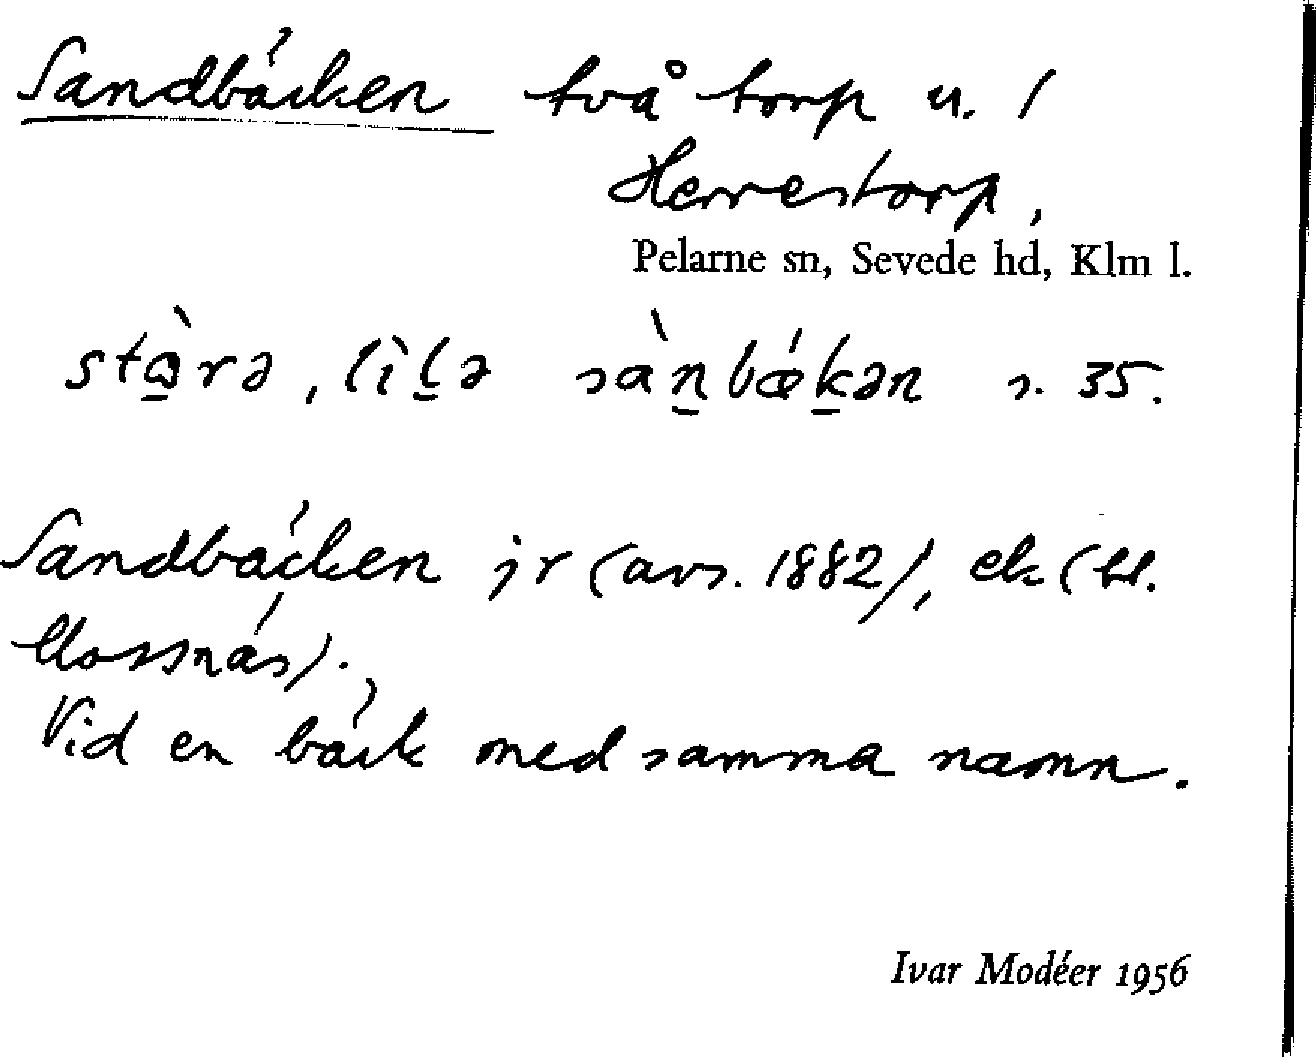 Sandbäcken två torp u. /
Herrestorp,
Pelarne sn, Sevede hd, Klm l.
s. 35.
Sandbäcken jr (avs. 1882), ek (bl.
Mossnäs).
Vid en bäck med samma namn.
Ivar Modéer 1956